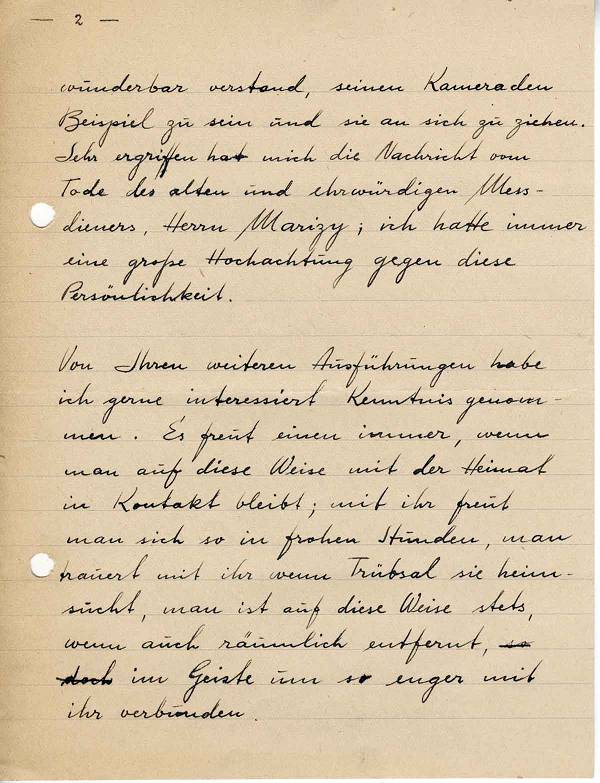 — 2 —
wunderbar verstand, seinen Kameraden
Beispiel zu sein und sie an sich zu ziehen.
Sehr ergriffen hat mich die Nachricht vom
Tode des alten und ehrwürdigen Mess-
dieners, Herrn Marizy; ich hatte immer
eine große Hochachtung gegen diese
Persönlichkeit.
Von Ihren weiteren Ausführungen habe
ich gerne interessiert Kenntnis genom-
men. Es freut einen immer, wenn
man auf diese Weise mit der Heimat
in Kontakt bleibt; mit ihr freut
man sich so in frohen Stunden, man
trauert mit ihr wenn Trübsal sie heim-
sucht, man ist auf diese Weise stets,
wenn auch räumlich entfernt, so
doch im Geiste um so enger mit
ihr verbunden.